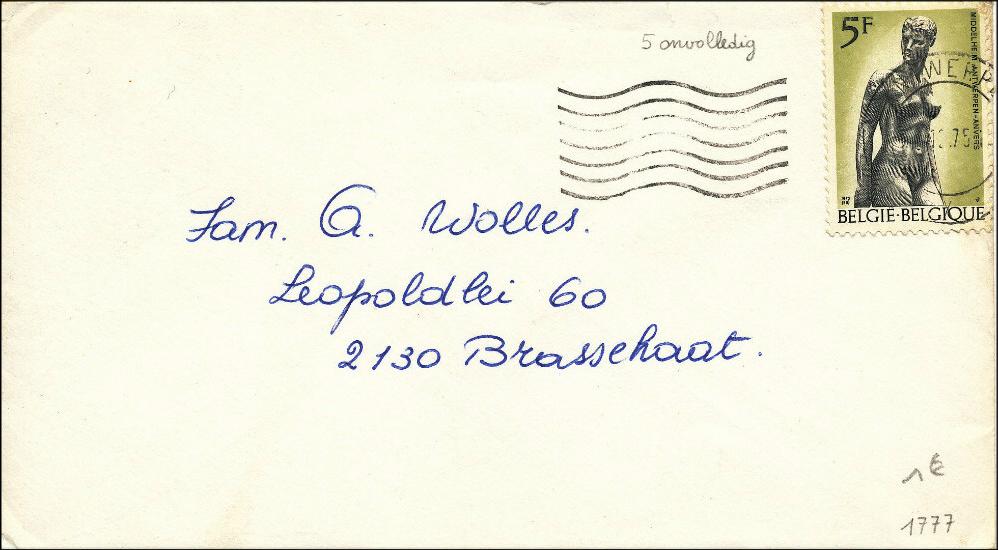 5 onvolledig
5F
MIDDELHEIM ANTWERPEN-ANVERS
BELGIE·BELGIQUE
Fam. A. Wolles.
Leopoldlei 60
2130 Brasschaat.
1€
1777